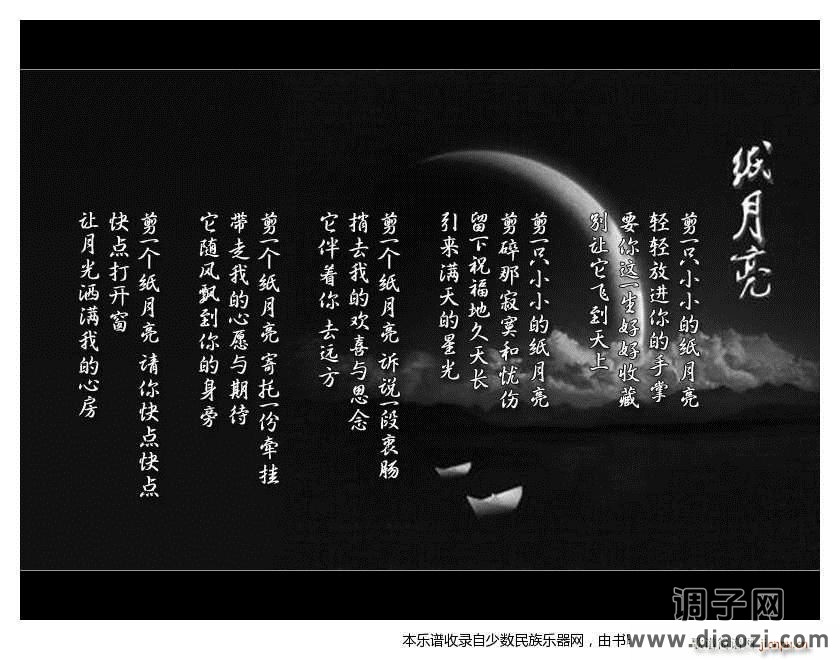 纸月亮
剪一只小小的纸月亮
轻轻放进你的手掌
要你这一生好好收藏
别让它飞到天上
剪一只小小的纸月亮
剪碎那寂寞和忧伤
留下祝福地久天长
引来满天的星光
剪一个纸月亮 诉说一段衷肠
捎去我的欢喜与思念
它伴着你 去远方
剪一个纸月亮 寄托一份牵挂
带走我的心愿与期待
它随风飘到你的身旁
剪一个纸月亮 请你快点快点
快点打开窗
让月光洒满我的心房
调子网
本乐谱收录自少数民族乐器网，由书
www.diaozi.com